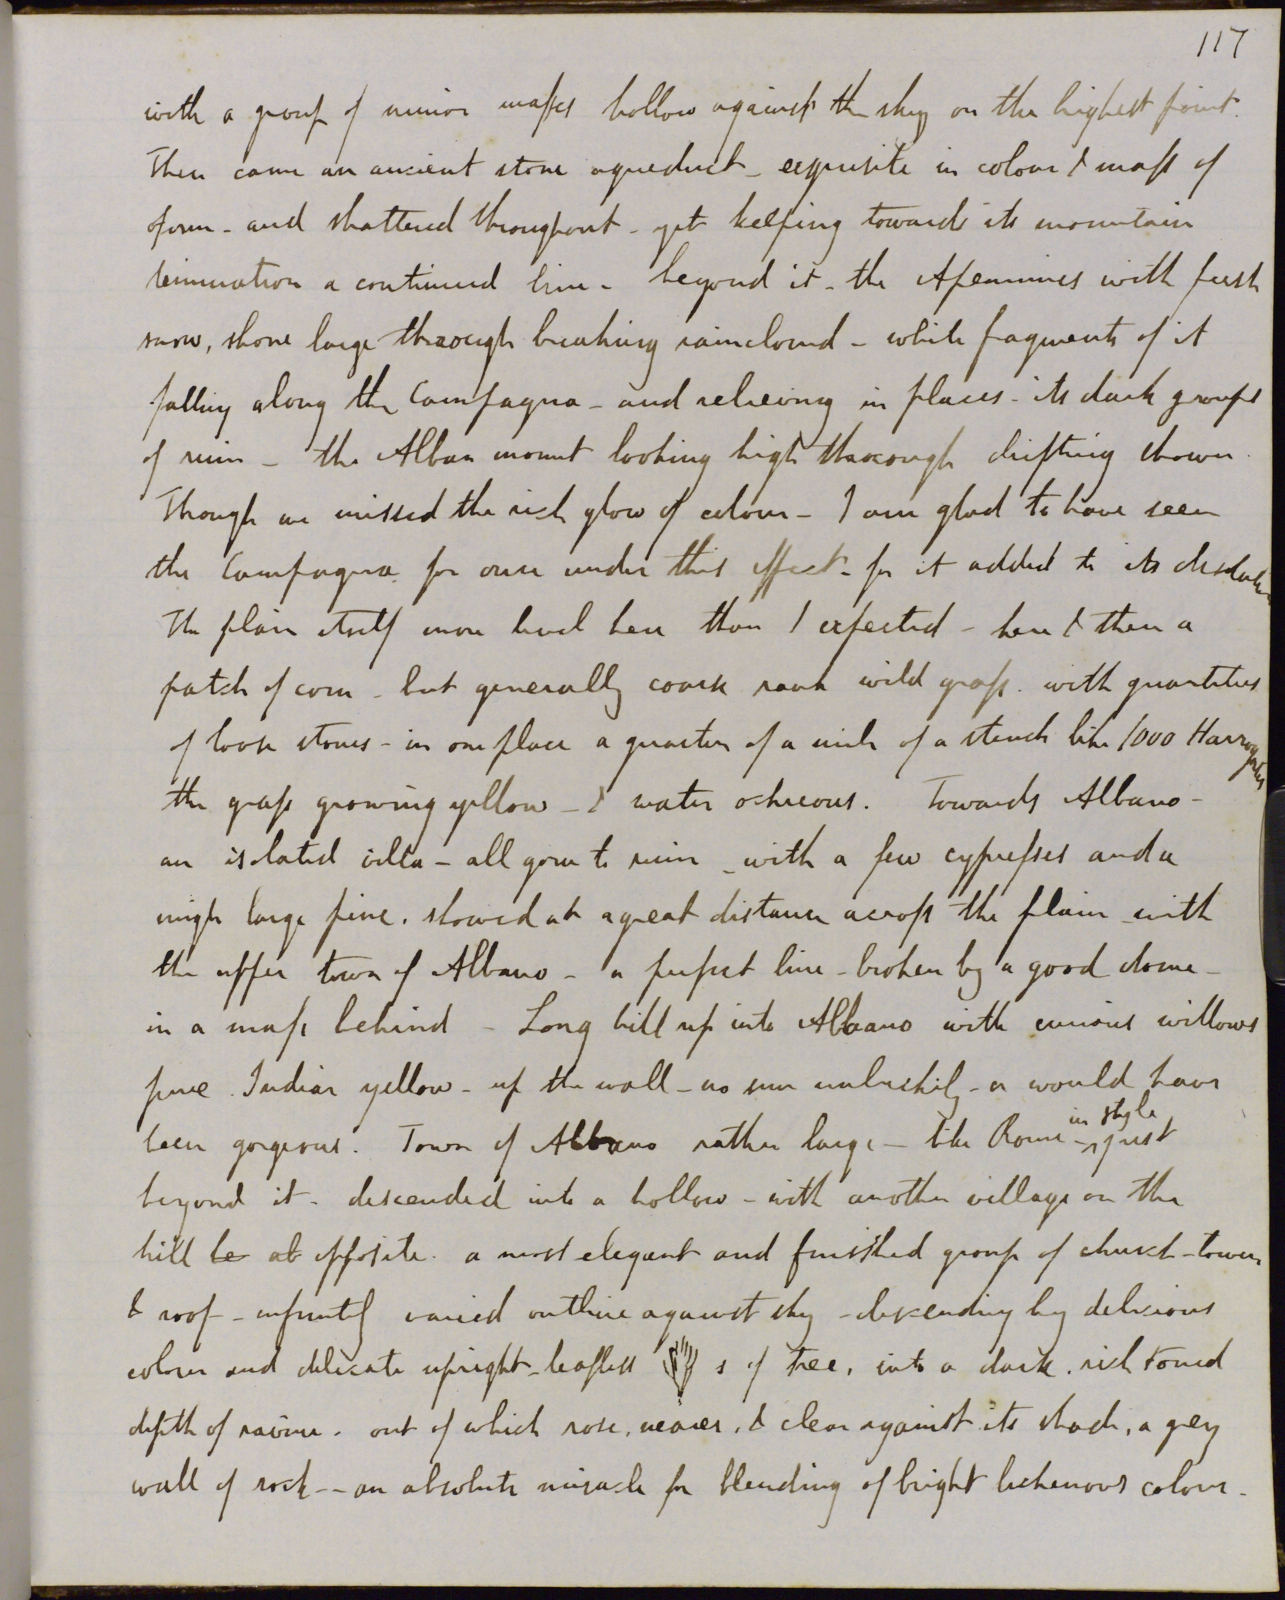 117
with a group of minor masses hollow against the sky on the highest point.
Then came an ancient stone aqueduct - exquisite in colour & mass of
form - and shattered throughout - yet keeping towards its mountain
termination a continued line - beyond it - the Apennines with fresh
snow, shone large through breaking raincloud - while fragments of it
falling along the Campagna - and relieving in places - its dark groups
of ruin - the Alban mount looking high through drifting shower.
Though we missed the rich glow of colour - I am glad to have seen
the Campagna for once under this effect - for it added to its desolation
The plain itself more level here than I expected - here & there a
patch of corn - but generally coarse rank wild grass. with quantities
of loose stones - in one place a quarter of a mile of a stench like 1000 Harrogates
the grass growing yellow - & water ochreous. Towards Albano -
an isolated villa - all gone to ruin - with a few cypresses and a
single large pine. showed at a great distance across the plain with
the upper town of Albano - a perfect line - broken by a good dome -
in a mass behind - Long hill up into Albano with curious willows
pure Indian yellow - up the wall - no sun unluckily - or would have
been gorgeous. Town of Albano rather large - like Rome in style - just
beyond it - descended into a hollow - with another village on the
hill be at opposite. a most elegant and finished group of church - tower
& roof - infinitely varied outline against sky - descending by delicious
colour and delicate upright - leafless s of tree, into a dark. rich toned
depth of ravine. out of which rose, nearer, & clear against its shade, a grey
wall of rock -- an absolute miracle for blending of bright lichenous colour -